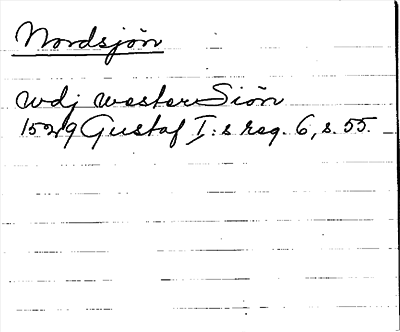 Nordsjön
udj westerSiön
1529 Gustaf I:s reg. 6, s. 55.